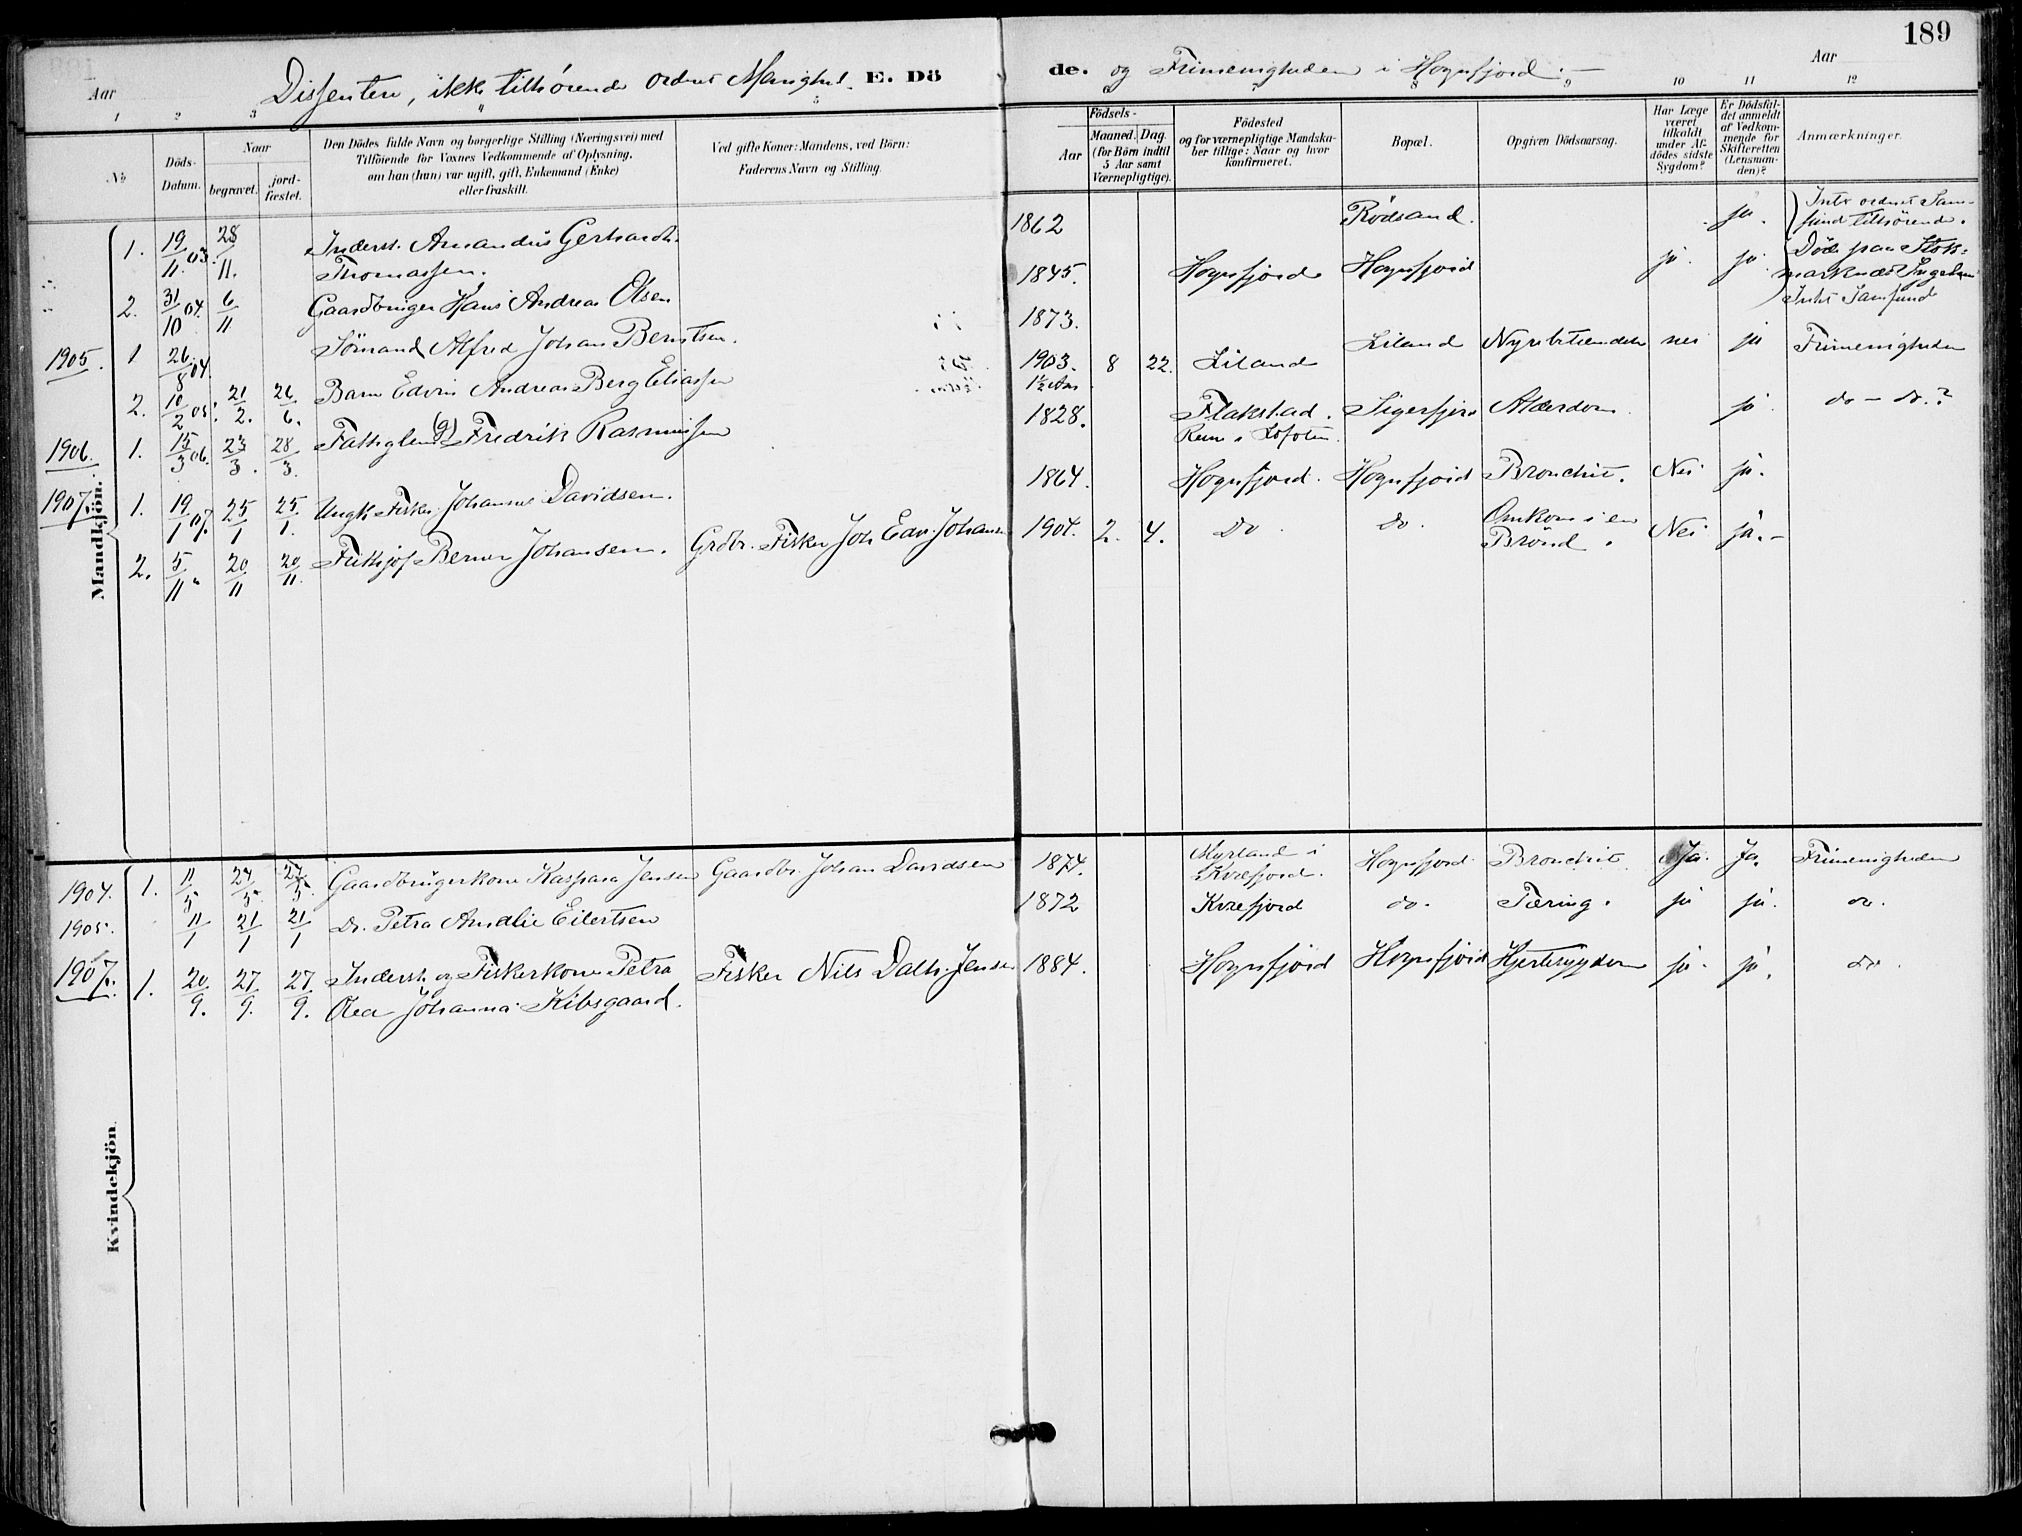 189
Dissentere, ikke tilhørende ordnet Menighet. E. Dö
de. og Frimenigheden i Hognfjord. —
Aar
Aar
1 2 3 4 5 6 7 8 9 10 11 12
№
Döds-
Datum.
Naar
begravet.
jord-
fæstet.
Den Dödes fulde Navn og borgerlige Stilling (Næringsvei) med
Tilföiende for Voxnes Vedkommende af Oplysning,
om han (hun) var ugift, gift, Enkemand (Enke)
eller fraskilt.
Ved gifte Koner: Mandens, ved Börn:
Faderens Navn og Stilling.
Födsels-
Aar
Maaned. Dag.
(for Börn indtil
5 Aar samt
Værnepligtige).
Födested
og for værnepligtige Mandska-
ber tillige: Naar og hvor
konfirmeret.
Bopæl.
Opgiven Dödsaarsag.
Har Læge
været
tilkaldt
under Af-
dödes sidste
Sygdom?
Er Dödsfal-
det anmeldt
af Vedkom-
mende for
Skifteretten
(Lensman-
den)?
Anmærkninger.
Mandkjön.
1. 19/11 03. 28/11. Inderst. Amandus Gerhardt 1862 Rødsand. ja. Intr ordnet Sam-
Thomassen. fund tilhørende.
2. 31/10 04. 6/11 Gaardbruger Hans Andreas Olsen 1845. Hognfjord Hognfjord ja. ja. Døde paa Stok-
marknes
Intet Samfund
1905. 1 26/8 04. Sömand Alfred Johan Berntsen. 1873.
2. 10/2 05. 21/2. 26/6. Barn Edvin Andreas Berg Eliassen 1903. 8 22. Liland Liland nei ja Frimenigheden
1½ Aar
1906. 1. 15/3 06. 23/3. 28/3. Fattiglem (g) Fredrik Rasmussen 1828. Flakstad. Sigerfjord Alderdom ja do - do.?
i Lofoten
1907. 1. 19/1 07. 25/1 25/1. Ungk. Fisker Johannes Davidsen. 1864. Hognfjord. Hognfjord Bronchit. Nei ja.
2. 5/11 20/11 20/11. Frithjof Berner Johansen. Grdbr. Fisker Joh. Edv. Johansen 1904. 2. 4. do do. Omkom i en Nei ja.-
Brønd.
Kvindekjön.
1904. 1. 11/5 27/5. 27/5. Gaardbrugerkone Kaspara Jensen Gaardbr. Johan Davidsen 1874. Myrland i Hognfjord. Bronchit Ja. Ja. Frimenigheden
Kvæfjord.
1905. 11/1 21/1 21/1 Do. Petra Amalie Eilertsen 1872 Kvæfjord do. Tæring. ja ja. do.
1907. 1. 20/9. 27/9. 27/9. Inderst. og Fiskerkone Petra Fisker Nils Jensen 1884. Hognfjord Hognfjord Hjertesygdom ja. ja. do.
Olea Johanna Kibsgaard.